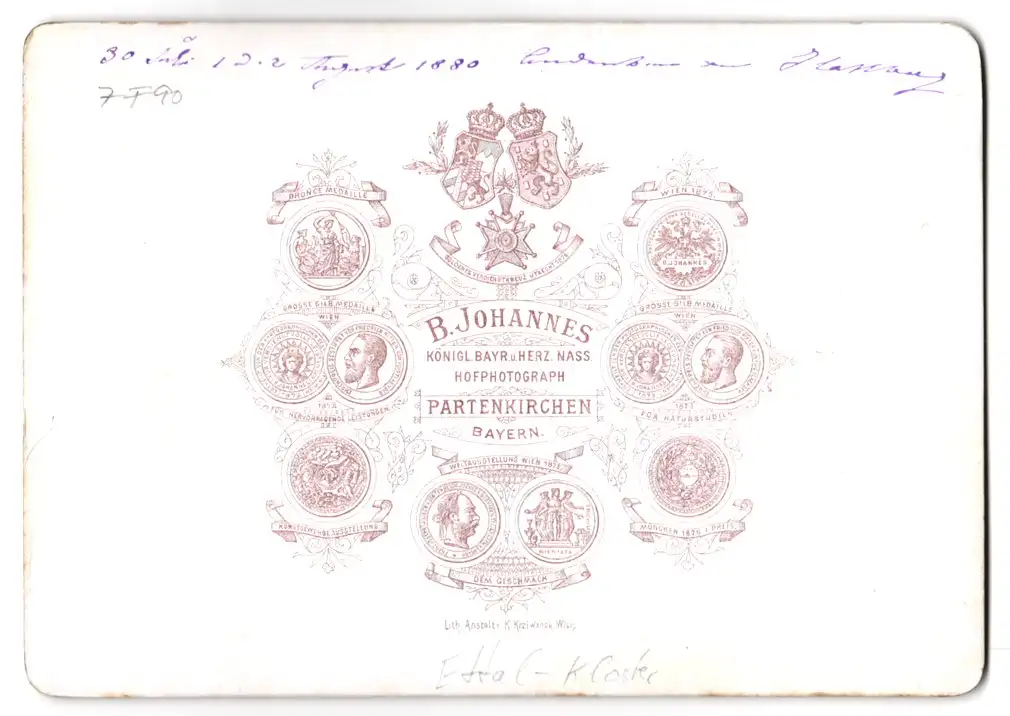 30 Juli 1 & 2 August 1880
7 F 90
BRONCE MEDAILLE
WIEN 1875
GOLDENES VERDIENSTKREUZ UTRECHT 1876
B. JOHANNES
GROSSE SILB. MEDAILLE
WIEN
GROSSE SILB. MEDAILLE
WIEN
B. JOHANNES
KÖNIGL. BAYR. u. HERZ. NASS.
HOFPHOTOGRAPH
PARTENKIRCHEN
BAYERN.
FÜR HERVORRAGENDE LEISTUNGEN
FÜR NATURSTUDIEN
WELTAUSSTELLUNG WIEN 1873
KUNSTGEWERBE AUSSTELLUNG
MÜNCHEN 1876 I PREIS
DEM GESCHMACK
Lith. Anstalt K. Krziwanek, Wien
Ettal - Kloster